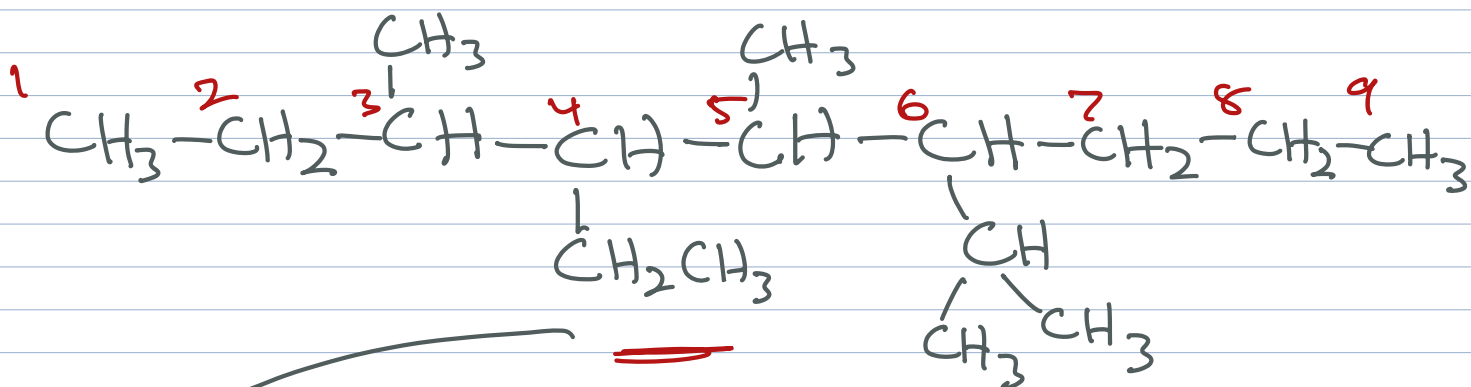 CH₃ CH₃
1 2 3 4 5 6 7 8 9
CH₃—CH₂—CH—CH—CH—CH—CH₂—CH₂—CH₃
CH₂CH₃ CH
CH₃ CH₃